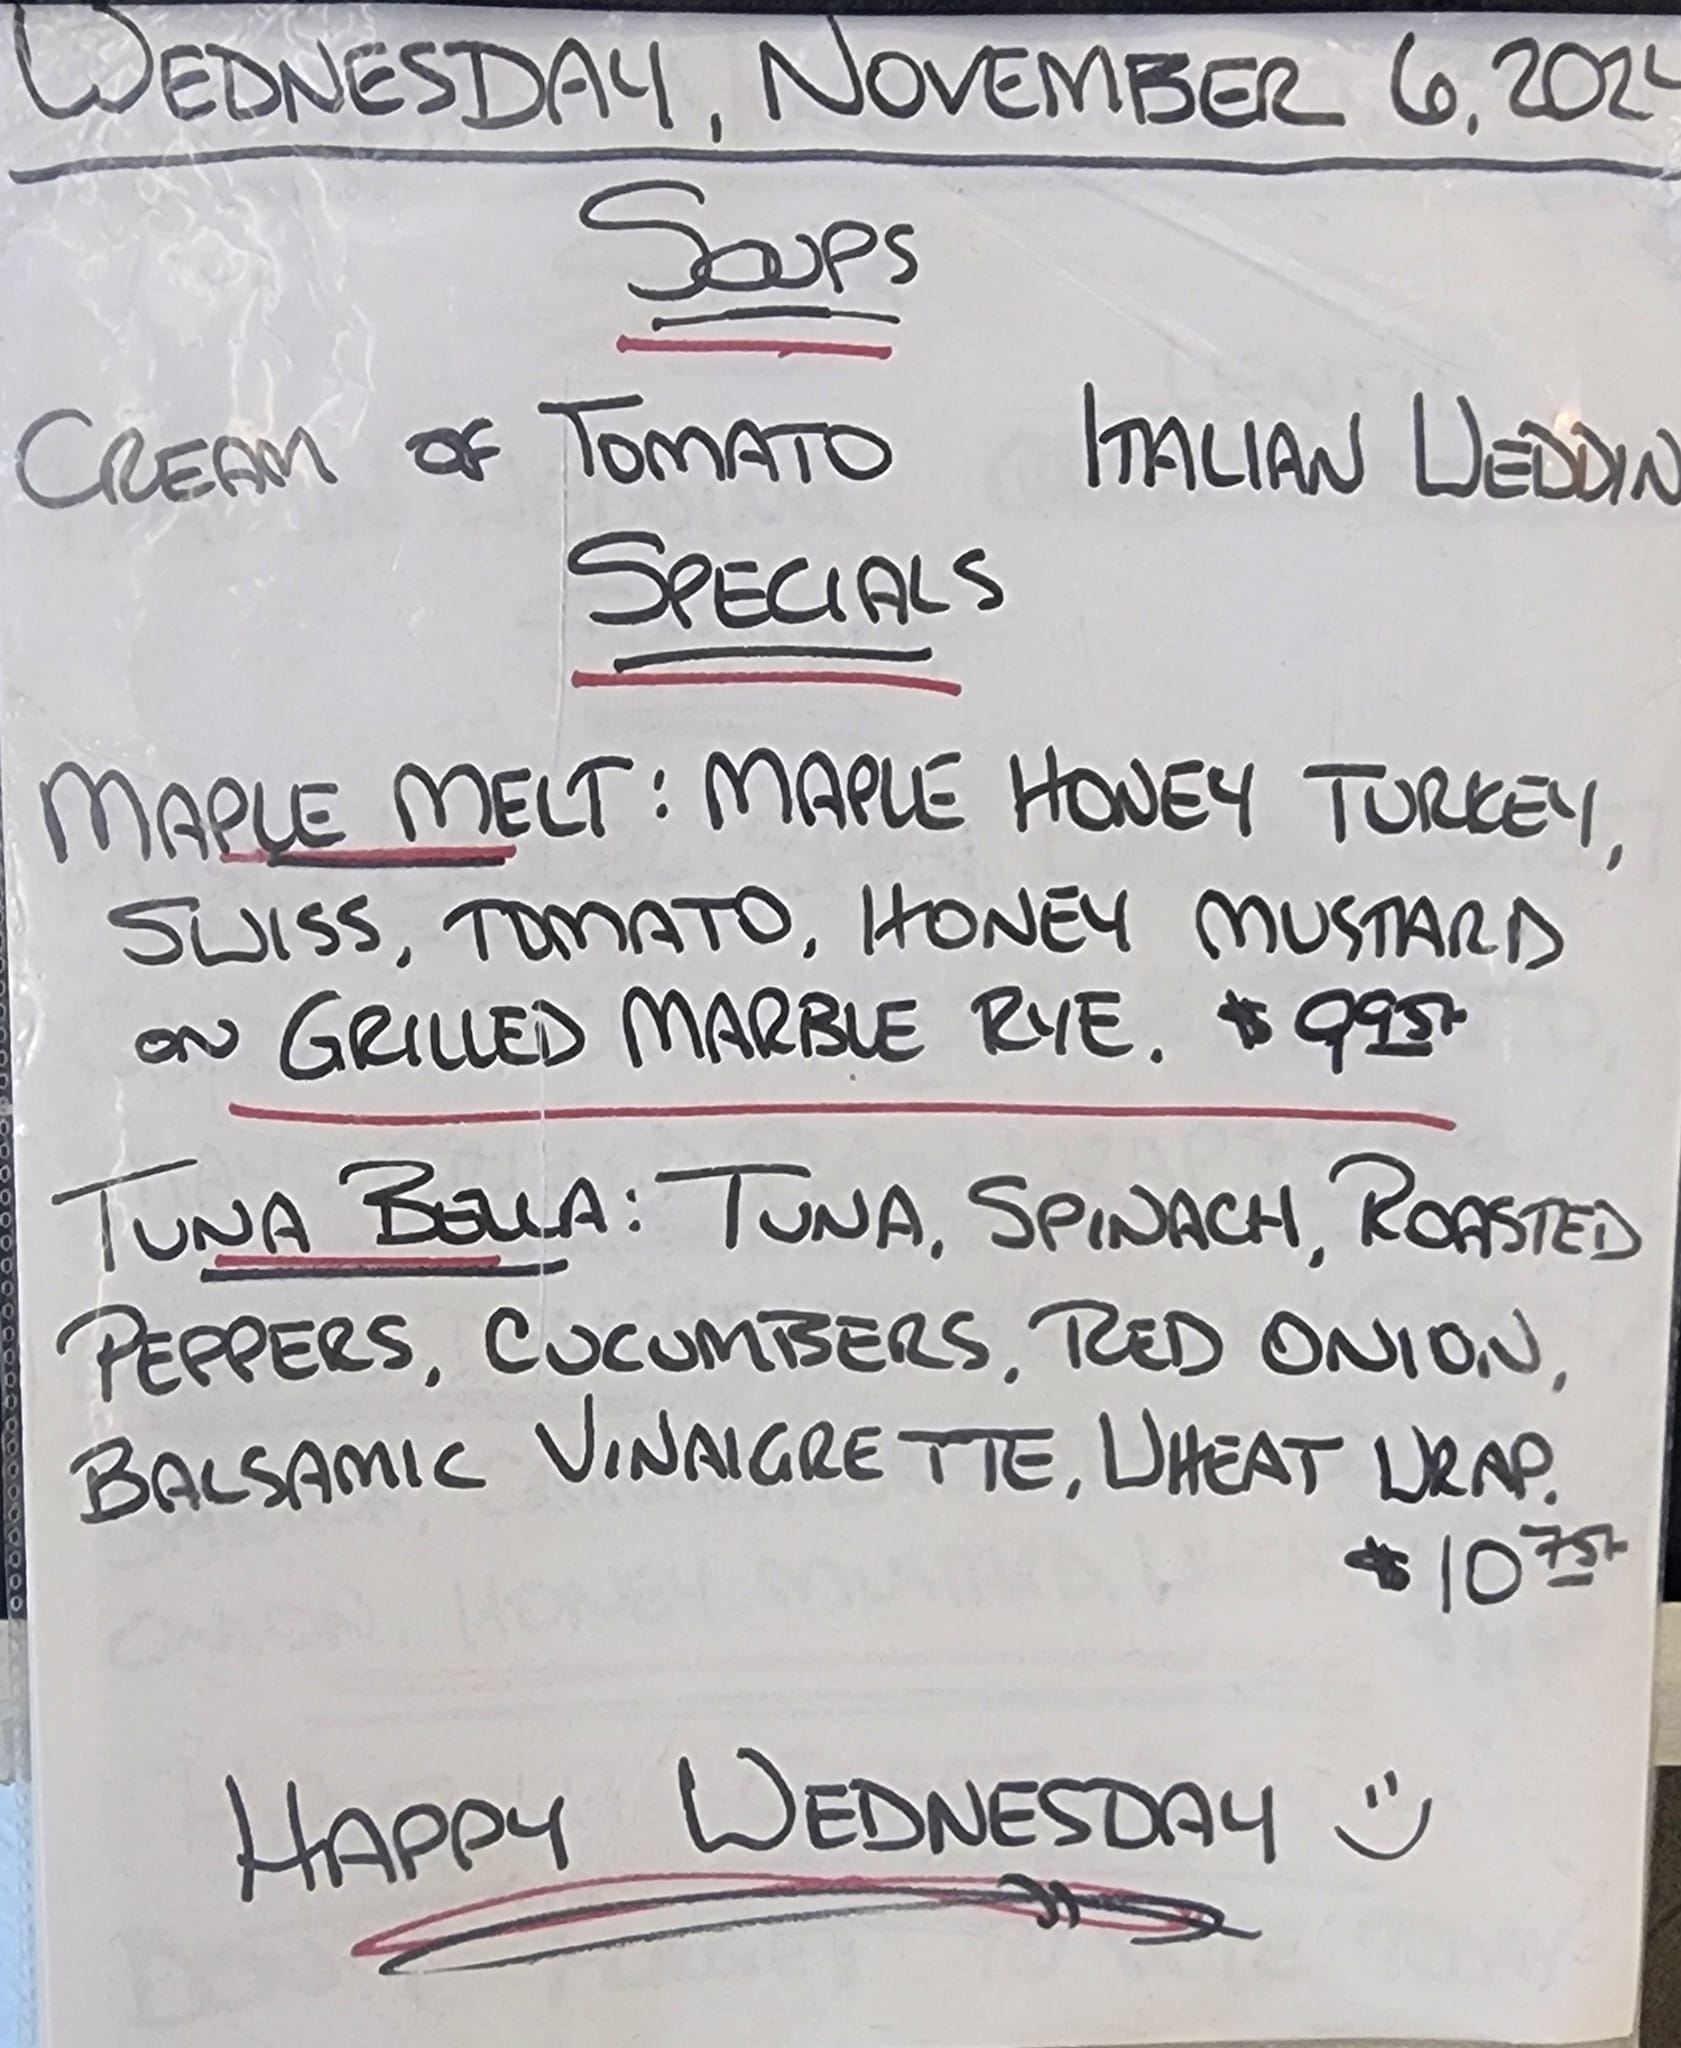 WEDNESDAY, NOVEMBER 6, 202
SOUPS
CREAM OF TOMATO ITALIAN WEDDIN
SPECIALS
MAPLE MELT: MAPLE HONEY TURKEY,
SWISS, TOMATO, HONEY MUSTARD
ON GRILLED MARBLE RYE. $9.95+
TUNA BELLA: TUNA, SPINACH, ROASTED
PEPPERS, CUCUMBERS, RED ONION,
BALSAMIC VINAIGRETTE, WHEAT WRAP.
$10 75+
HAPPY WEDNESDAY